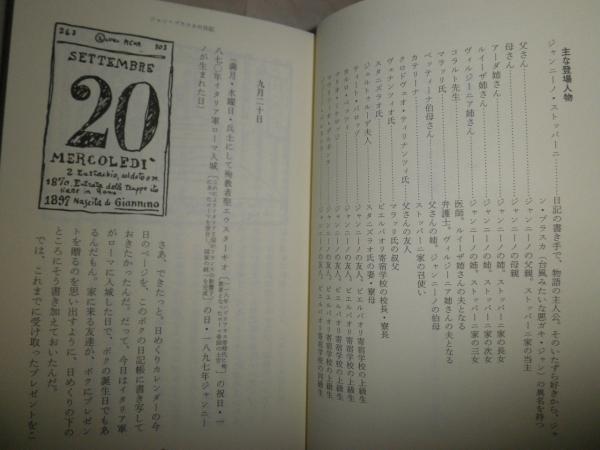 主な登場人物
ジャンニーノ・ストッパーニ……日記の書き手で、物語の主人公。そのいたずら好きから、ジャ
ン・ブラスカ（台風みたいな悪ガキ・ジャン）の異名を持つ
父さん……ジャンニーノの父親。ストッパーニ家の当主
母さん……ジャンニーノの母親
アーダ姉さん……ジャンニーノの姉。ストッパーニ家の長女
ルイーザ姉さん……ジャンニーノの姉。ストッパーニ家の次女
ヴィルジーニア姉さん……ジャンニーノの姉。ストッパーニ家の三女
コラルト先生……医師。ルイーザ姉さんの夫となる
マラッリ氏……弁護士。ヴィルジーニア姉さんの夫となる
ベッティーナ伯母さん……父さんの姉。ジャンニーノの伯母
カテリーナ……ストッパーニ家の召使い
クロドヴェオ・ティリナンツィ氏……父さんの友人
ヴェナンツィオ氏……マラッリ氏の叔父
スタニズラオ氏……ピエルパオリ寄宿学校の校長・寮長
ジェルトルーデ夫人……スタニズラオ氏の妻・寮母
ティート・バロッゾ……ジャンニーノの友人。ピエルパオリ寄宿学校の上級生
ジャンニーノの友人。ピエルパオリ寄宿学校の上級生
ジャンニーノの友人。ピエルパオリ寄宿学校の上級生
ジャンニーノの友人。ピエルパオリ寄宿学校の同級生
九月二十日
（満月・水曜日・兵士にして殉教者聖エウスターキオ
の祝日・一
八七〇年イタリア軍ローマ入城
の日・一八九七年ジャンニー
ノが生まれた日）
263
303
SETTEMBRE
20
MERCOLEDÌ
1870
1897 Nascita di Giannino
さあ、できたっと。日めくりカレンダーの今
日のページを、このボクの日記帳に書き写して
おきたかったんだ。だって、今日はイタリア軍
がローマに入城した日で、ボクの誕生日でもあ
るんだもん。家に来る友達が、ボクにプレゼン
トを贈るのを思い出すように、日めくりの下の
ところにそう書き加えておいたんだ。
では、これまでに受け取ったプレゼントをこ